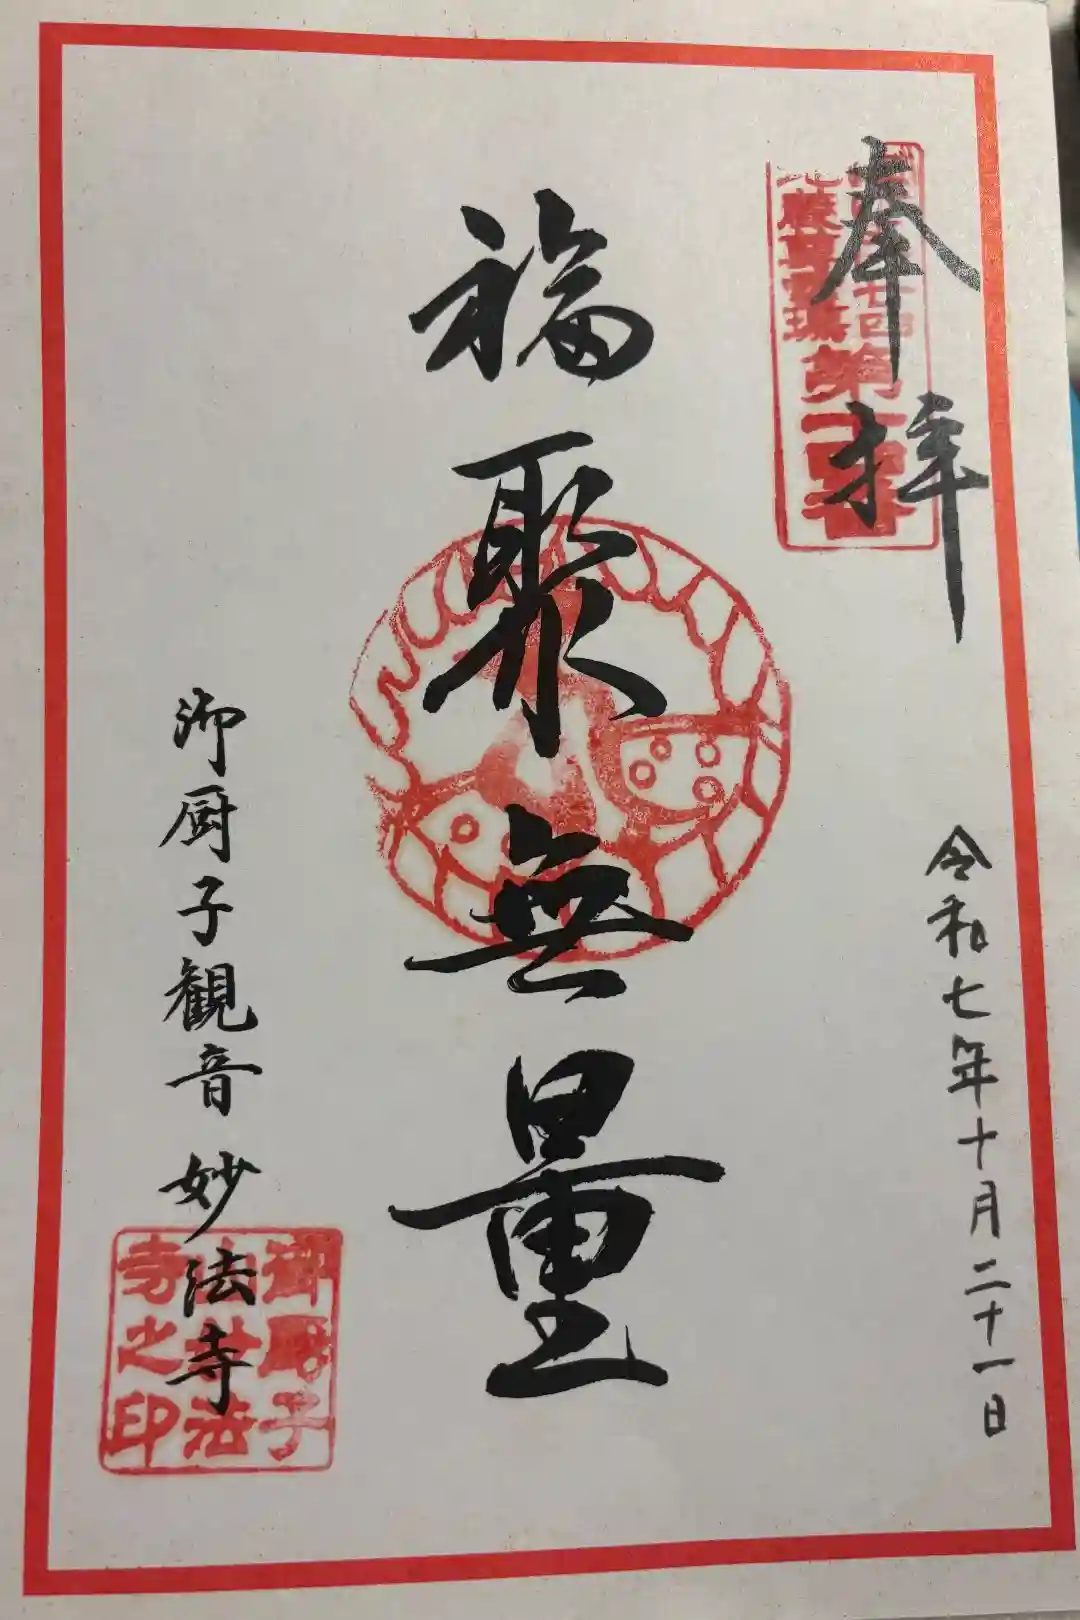 奉拝
第
番
令和七年十月二十一日
福聚無量
御厨子観音 妙法寺
御厨子
山妙法
寺之印